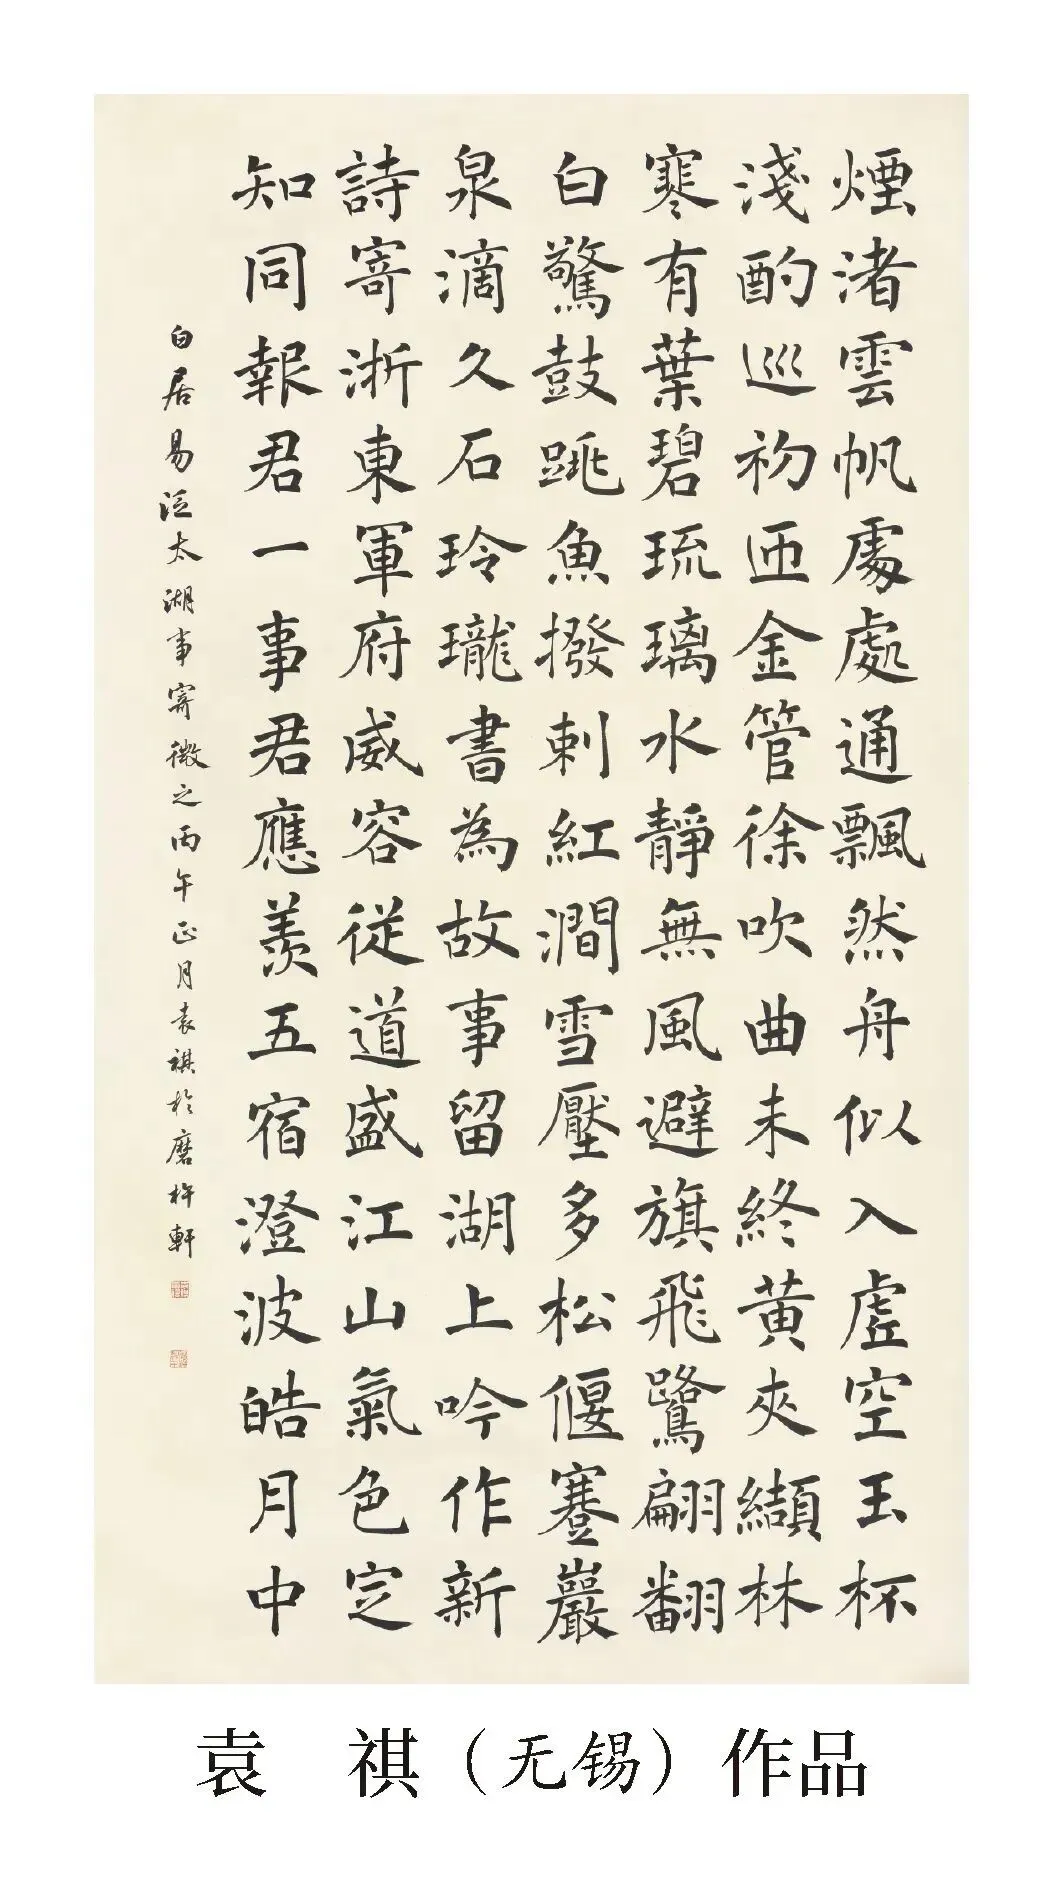 煙渚雲帆處處通飄然舟似入虛空玉杯
淺酌巡初匝金管徐吹曲未終黃夾纈林
寒有葉碧琉璃水靜無風避旗飛鷺翩翻
白驚鼓跳魚撥剌紅澗雪壓多松偃蹇巖
泉滴久石玲瓏書為故事留湖上吟作新
詩寄浙東軍府威容從道盛江山氣色定
知同報君一事君應羨五宿澄波皓月中
白居易泛太湖事寄微之丙午正月袁祺於磨杵軒
袁 祺（无锡）作品